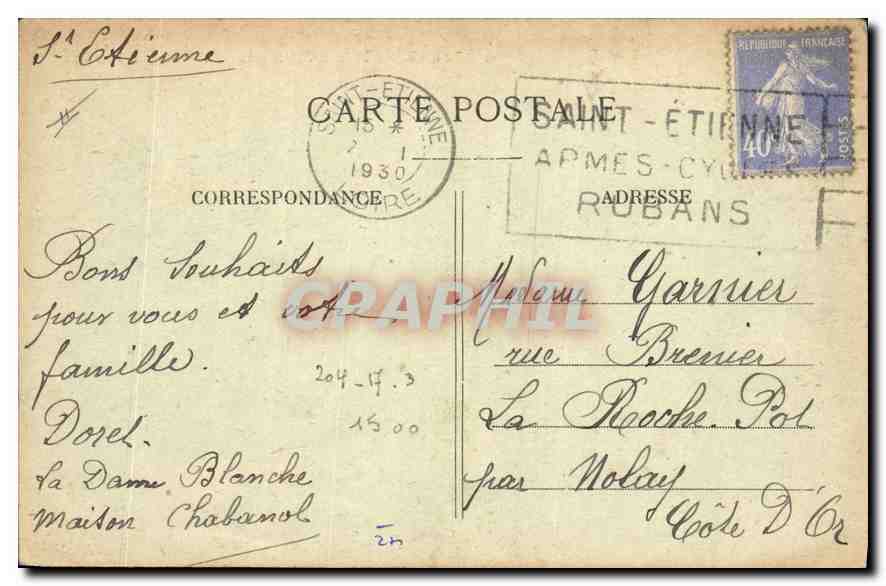 St Etienne
CARTE POSTALE
SAINT-ETIENNE
13 *
2 - 1
1930
LOIRE
SAINT-ÉTIENNE
ARMES-CYC
RUBANS
REPUBLIQUE FRANÇAISE
40
POSTES
CORRESPONDANCE
ADRESSE
Bons Souhaits
pour vous et votre
famille.
Dorel.
La Dame Blanche
maison Chabanol
204-17.3
15 00
Madame Garnier
rue Brenier
La Roche-Pot
par Nolay
Côte D'Or
CPAPHIL